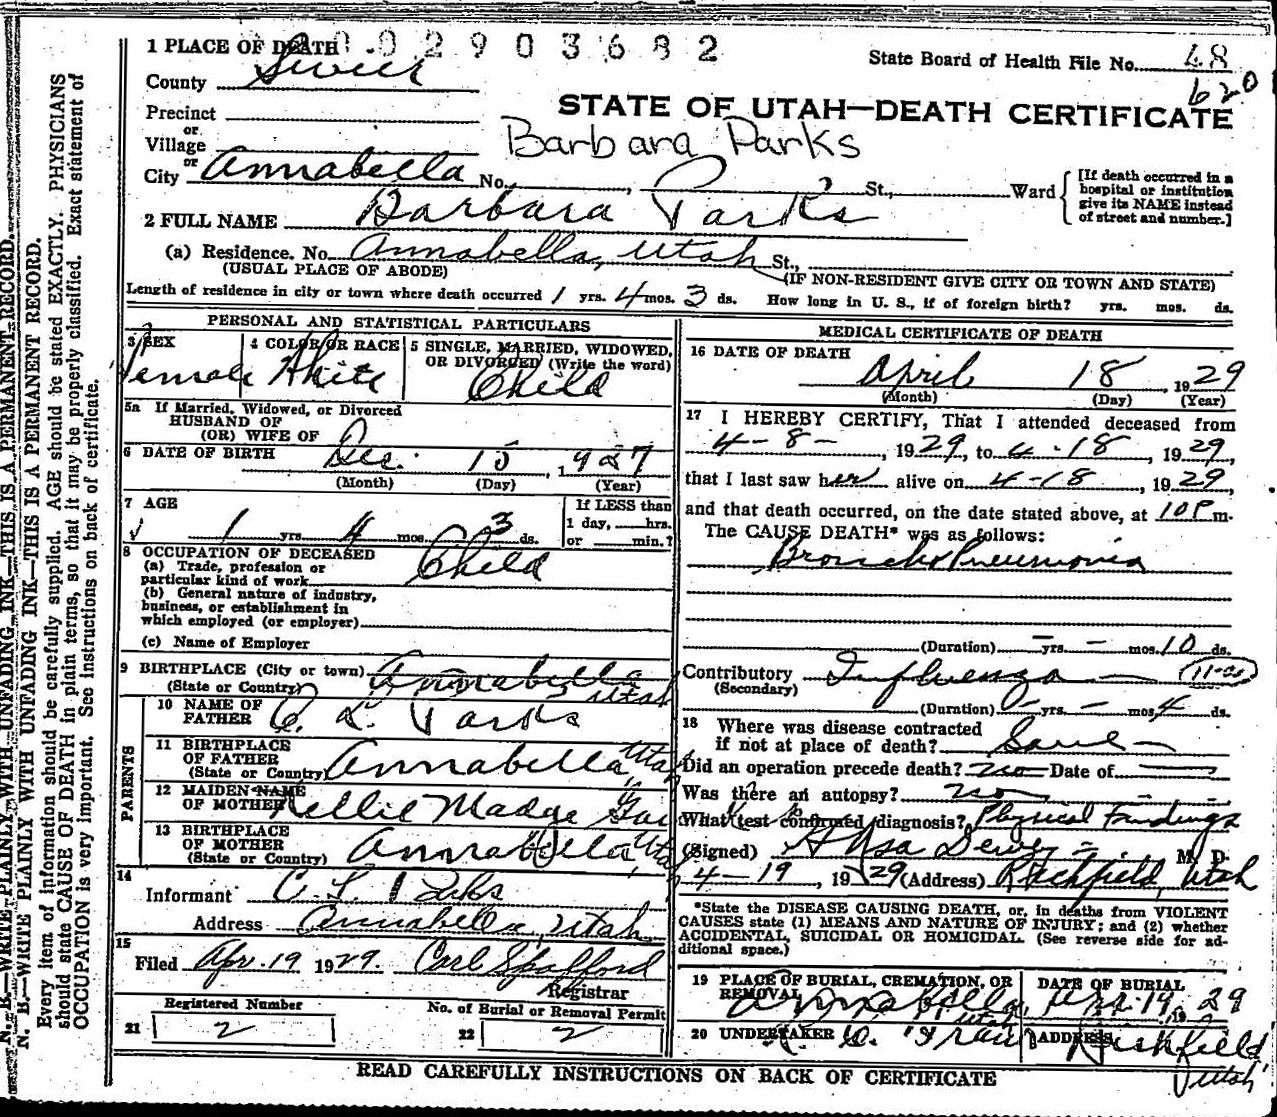 N. B.—WRITE PLAINLY WITH UNFADING INK—THIS IS A PERMANENT RECORD.
N. B.—WRITE PLAINLY WITH UNFADING INK—THIS IS A PERMANENT RECORD.
Every item of information should be carefully supplied. AGE should be stated EXACTLY. PHYSICIANS
should state CAUSE OF DEATH in plain terms, so that it may be properly classified. Exact statement of
OCCUPATION is very important. See instructions on back of certificate.
1 PLACE OF DEATH 002903682
State Board of Health File No. 48
620
County Sevier
STATE OF UTAH—DEATH CERTIFICATE
Precinct
or
Village
Barbara Parks
or
City Annabella No. , St., Ward
[If death occurred in a
hospital or institution
give its NAME instead
of street and number.]
2 FULL NAME Barbara Parks
(a) Residence. No. Annabella, Utah St.,
(USUAL PLACE OF ABODE) (IF NON-RESIDENT GIVE CITY OR TOWN AND STATE)
Length of residence in city or town where death occurred 1 yrs. 4 mos. 3 ds. How long in U. S., if of foreign birth? yrs. mos. ds.
PERSONAL AND STATISTICAL PARTICULARS
3 SEX 4 COLOR OR RACE 5 SINGLE, MARRIED, WIDOWED,
OR DIVORCED (Write the word)
Female White Child
5a If Married, Widowed, or Divorced
HUSBAND OF
(OR) WIFE OF
6 DATE OF BIRTH Dec. 15, 1927
(Month) (Day) (Year)
7 AGE If LESS than
1 yrs. 4 mos. 3 ds. 1 day, hrs.
or min.?
8 OCCUPATION OF DECEASED
(a) Trade, profession or
particular kind of work Child
(b) General nature of industry,
business, or establishment in
which employed (or employer)
(c) Name of Employer
9 BIRTHPLACE (City or town) Annabella
(State or Country) Utah
PARENTS
10 NAME OF
FATHER C. L. Parks
11 BIRTHPLACE
OF FATHER
(State or Country) Annabella, Utah
12 MAIDEN NAME
OF MOTHER Nellie Madge
13 BIRTHPLACE
OF MOTHER
(State or Country) Annabella, Utah
14
Informant C. L. Parks
Address Annabella, Utah
15
Filed Apr. 19 1929. Carl Spafford
Registrar
Registered Number No. of Burial or Removal Permit
21 2 22 2
MEDICAL CERTIFICATE OF DEATH
16 DATE OF DEATH
April 18, 1929
(Month) (Day) (Year)
17 I HEREBY CERTIFY, That I attended deceased from
4-8-, 1929, to 4-18, 1929,
that I last saw her alive on 4-18, 1929,
and that death occurred, on the date stated above, at 10 P m.
The CAUSE DEATH* was as follows:
Broncho Pneumonia
(Duration) — yrs. — mos. 10 ds.
Contributory Influenza
(Secondary)
(Duration) yrs. — mos. 4 ds.
18 Where was disease contracted
if not at place of death? Same
Did an operation precede death? no Date of
Was there an autopsy? no
What test confirmed diagnosis? Physical Findings
(Signed) Dewey M. D.
4-19, 1929 (Address) Richfield, Utah
*State the DISEASE CAUSING DEATH, or, in deaths from VIOLENT
CAUSES state (1) MEANS AND NATURE OF INJURY; and (2) whether
ACCIDENTAL, SUICIDAL OR HOMICIDAL. (See reverse side for ad-
ditional space.)
19 PLACE OF BURIAL, CREMATION, OR DATE OF BURIAL
REMOVAL Annabella, Utah Apr. 19, 1929
20 UNDERTAKER ADDRESS Richfield
Utah
READ CAREFULLY INSTRUCTIONS ON BACK OF CERTIFICATE